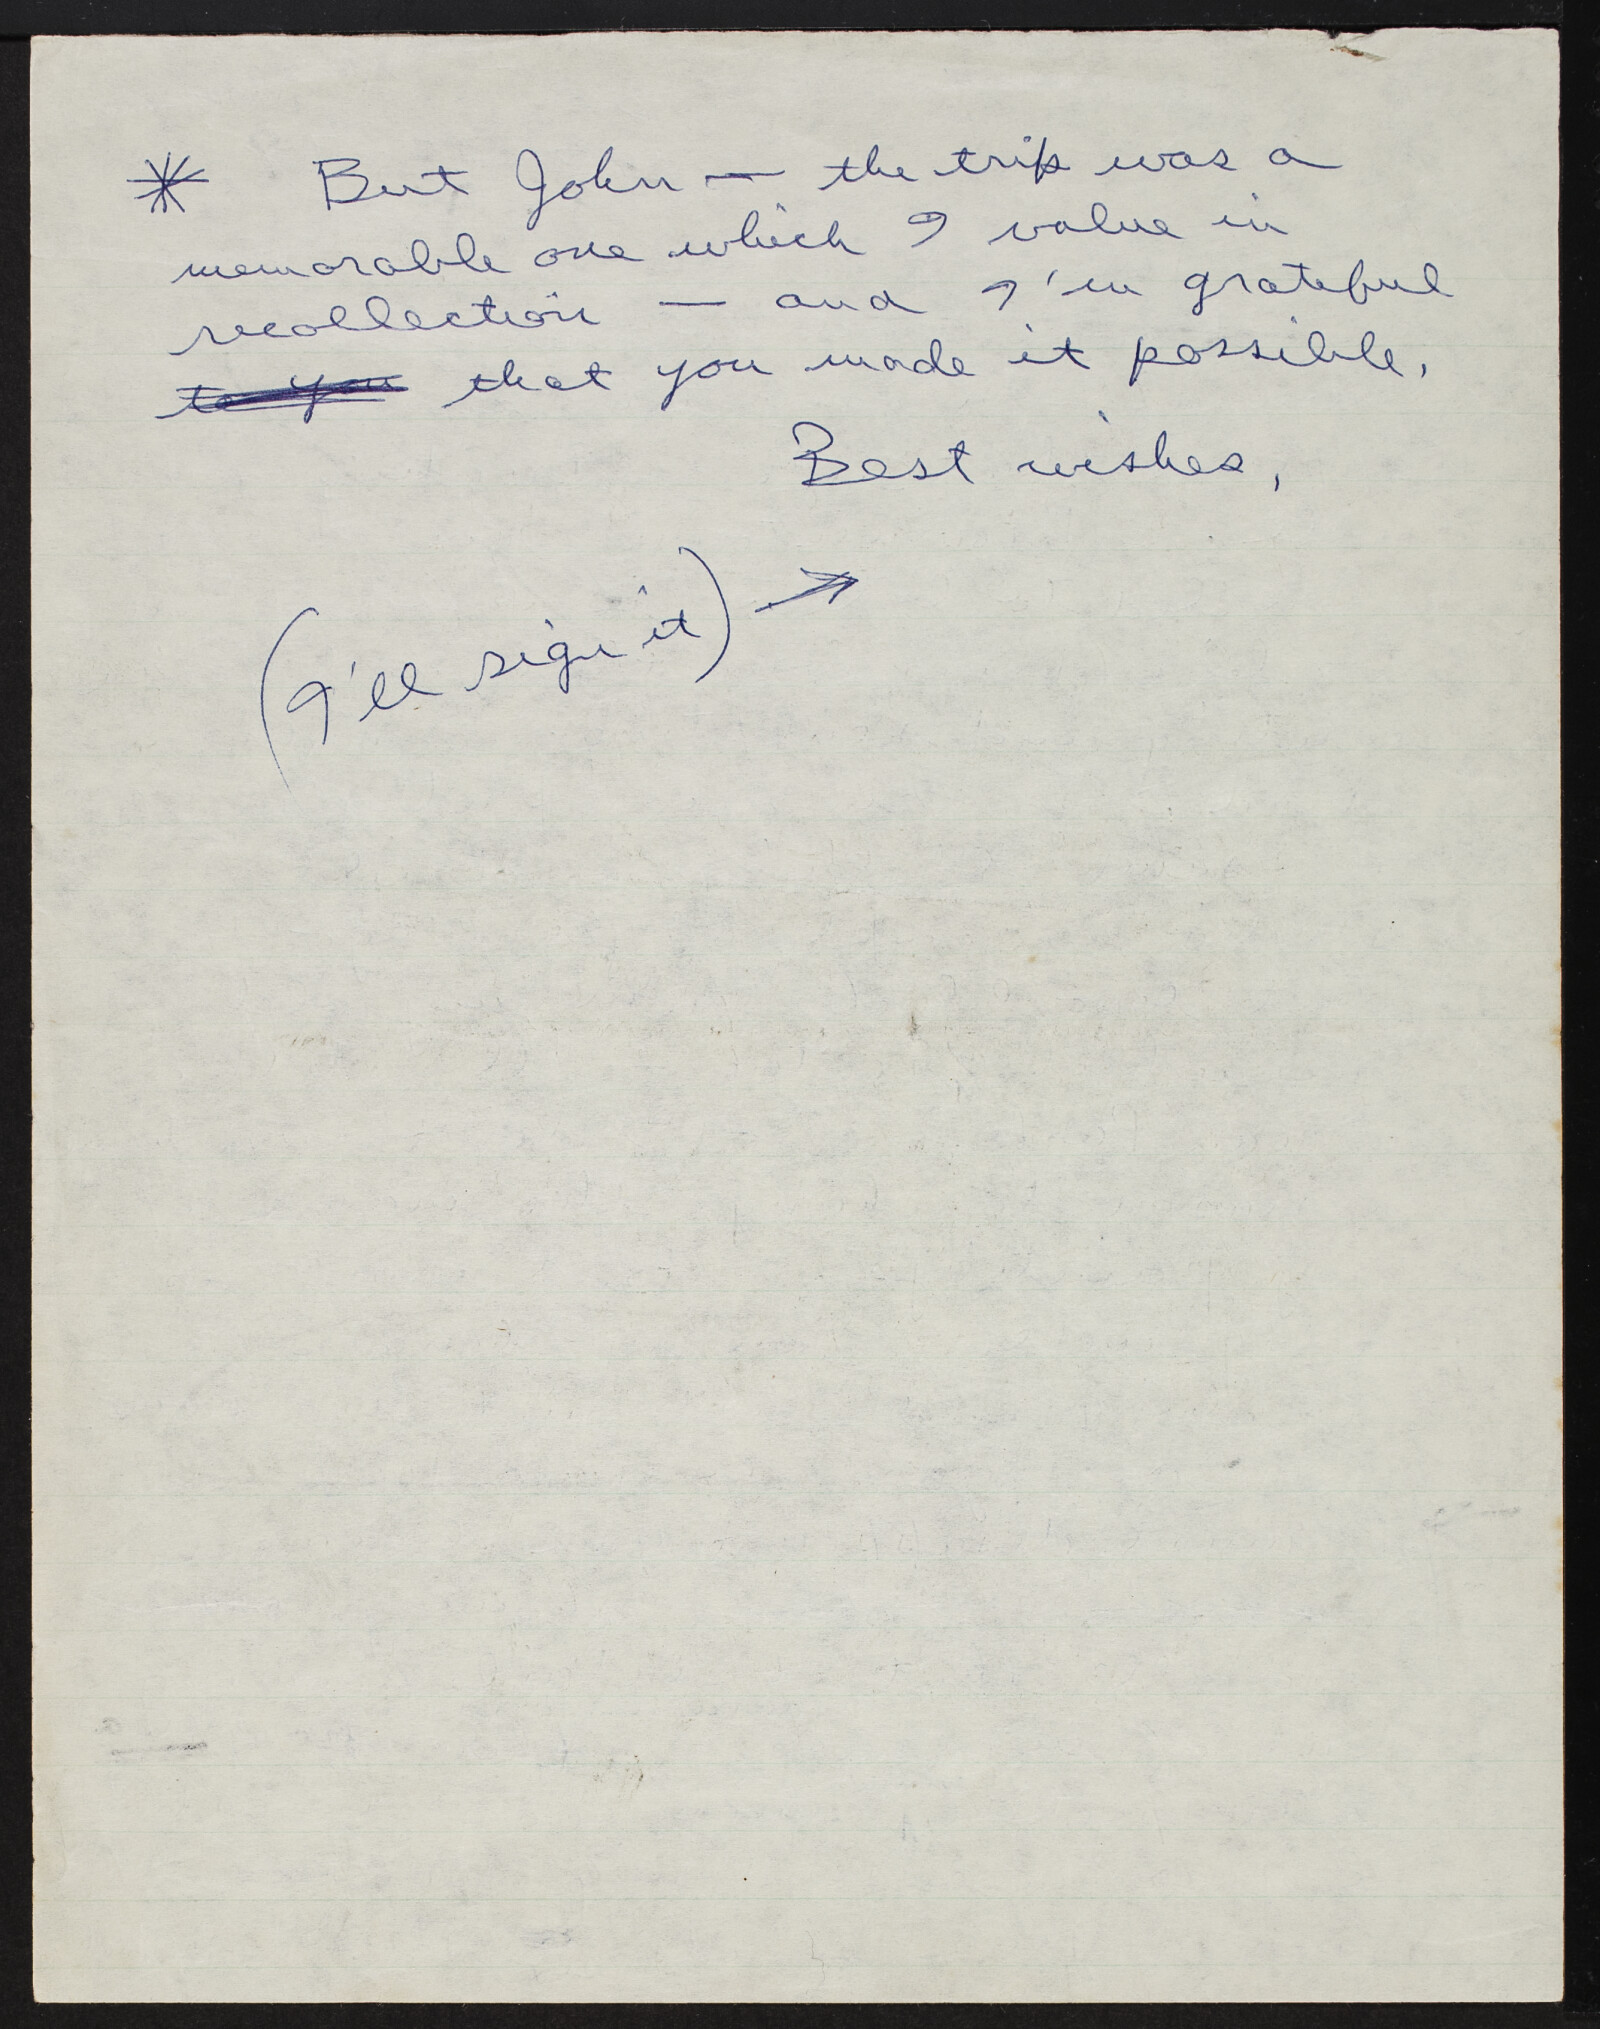 * But John — the trip was a
memorable one which I value in
recollection — and I'm grateful
to you that you made it possible.
Best wishes,
(I'll sign it) →